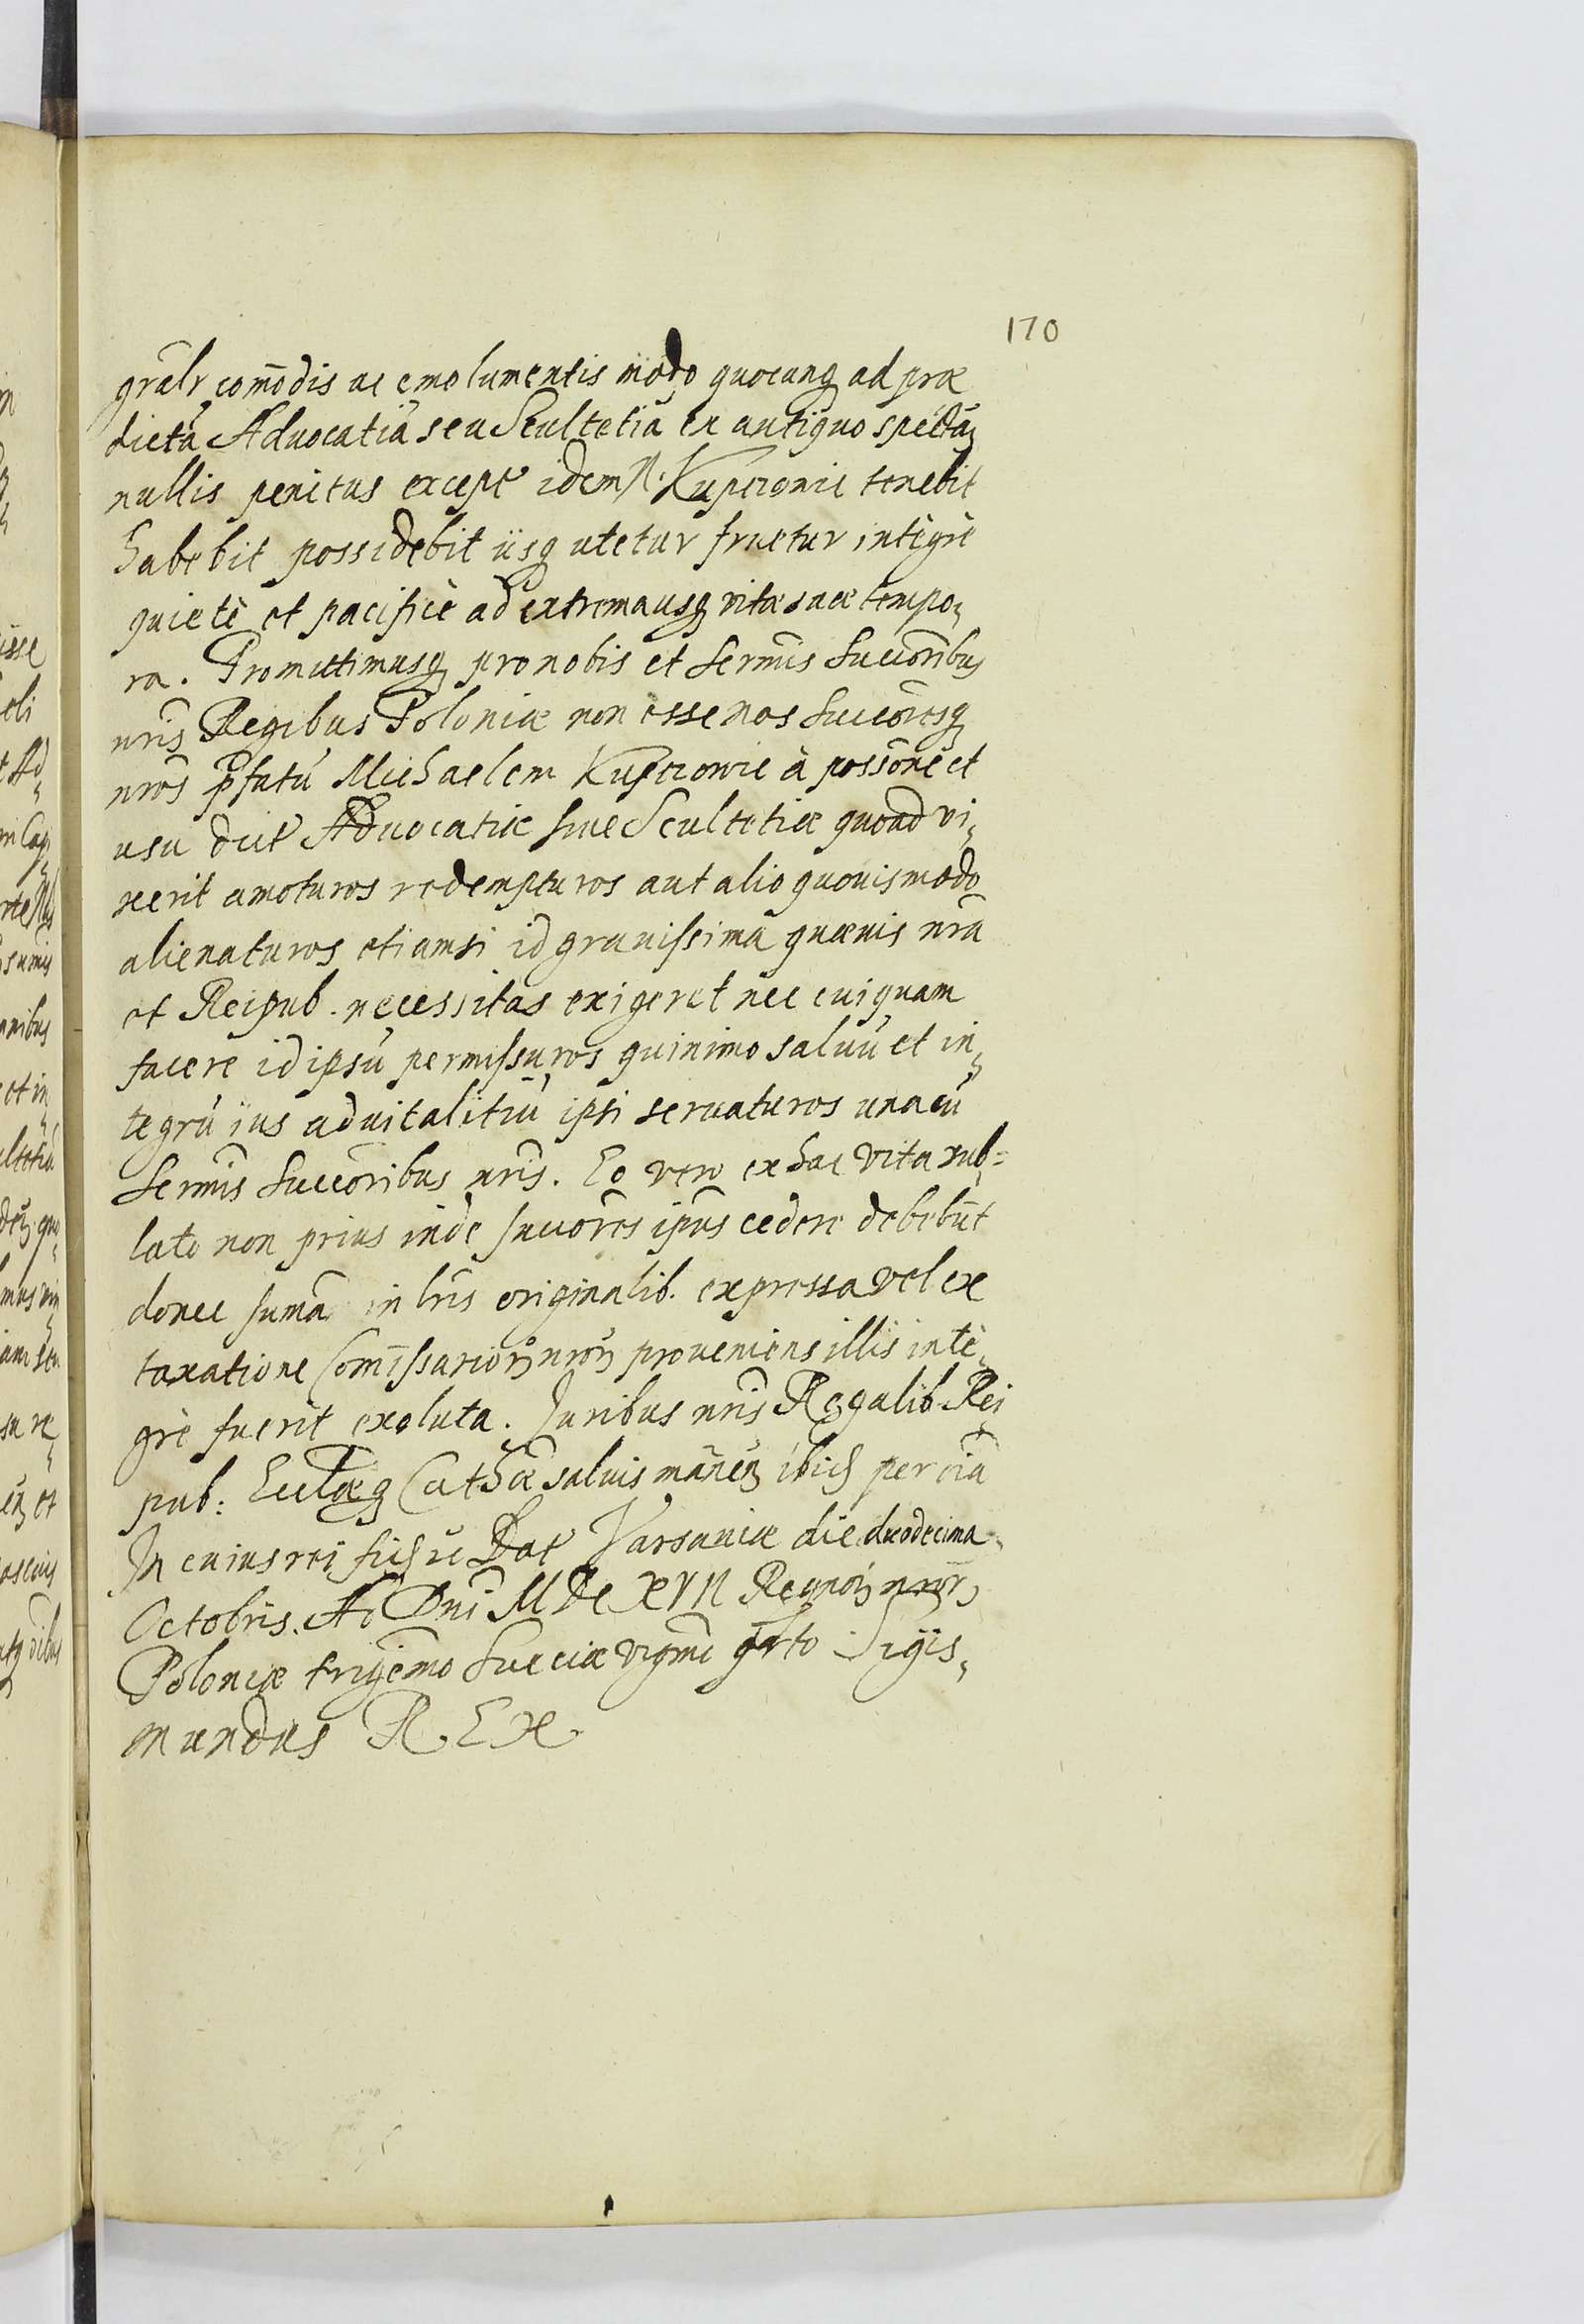 170
grãlr com̃odis ac emolumentis modo quocunq ad præ
dictã Aduocatiã seu Scultetiã ex antiquo spectañ
nullis penitus except idem N. Kuperowic tenebit
habebit possidebit iisq utetur fruetur integrè
quietè et pacificè ad extrema usq vitæ suæ tempo
ra. Promittimusq pro nobis et Sermis Succoribus
nris Regibus Poloniæ non esse nos Succoresq
nros pfatũ Michaelem Kuperowic à possone et
usu dict Aduocatiæ siue Scultetiæ quoad vi
xerit amoturos redempturos aut alio quouis modo
alienaturos etiamsi id grauissima quæuis nra
et Reipub. necessitas exigeret nec cuiquam
facere id ipsũ permissuros quinimo saluũ et in
tegrũ ius aduitalitiũ ipsi seruaturos una cũ
Sermis Succoribus nris. Eo vero ex hac vita sub=
lato non prius inde succores ipius cedere debebũt
donec suma in lris originalib. expressa vel ex
taxatione Comissarior nror proueniens illis inte
grè fuerit exoluta. Juribus nris Regalib. Rei
pub: Ecclæq Cathæ saluis maneñ ibid per oia
In cuius rei fid Dat Varsauiæ die duodecima
Octobris. Ao Dni MDCXVII Regnor nror
Poloniæ trigemo Sueciæ vigmo qrto Sigis
mundus REX